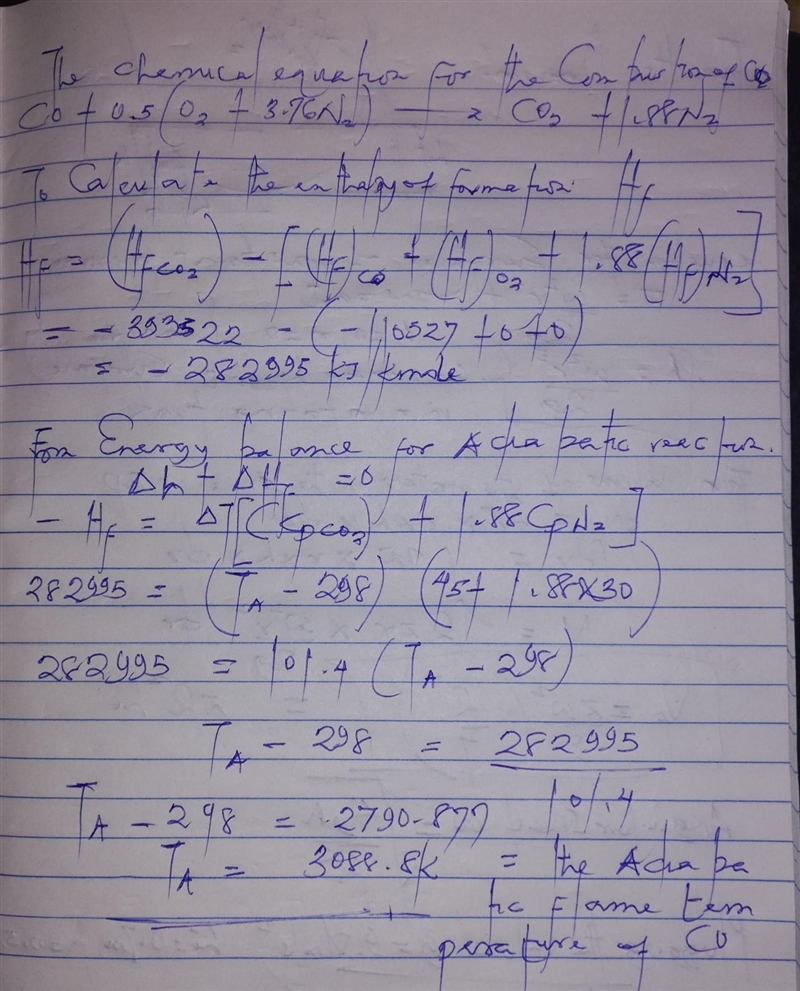 The chemical equation for the Combustion of CO
CO + 0.5 (O2 + 3.76N2) → CO2 + 1.88N2
To Calculate the enthalpy of formation Hf
Hf = (HfCO2) - [(Hf)CO + (Hf)O2 + 1.88(Hf)N2]
= - 393522 - (-110527 + 0 + 0)
= - 282995 kJ/kmole
For Energy balance for Adiabatic reaction.
Δh + ΔHf = 0
- Hf = ΔT[(CpCO2) + 1.88CpN2]
282995 = (TA - 298) (45 + 1.88×30)
282995 = 101.4 (TA - 298)
TA - 298 = 282995
101.4
TA - 298 = 2790.877
TA = 3088.8k = the Adiaba
tic flame tem
perature of CO